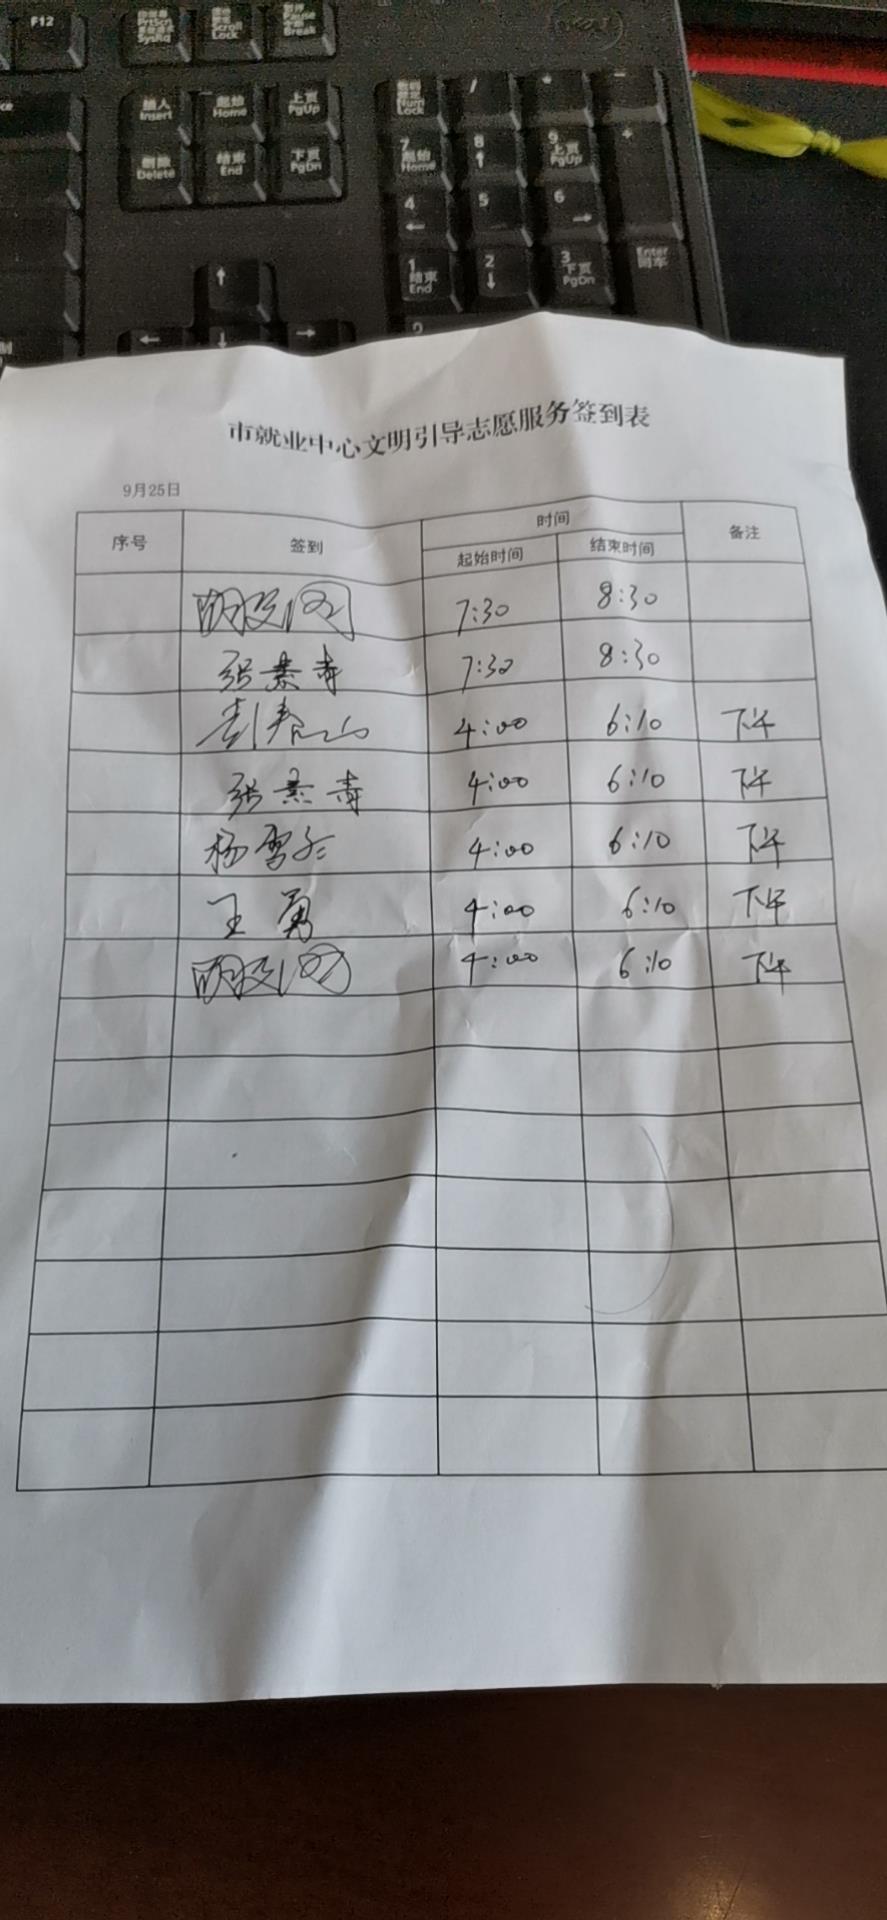 F12
PrtScn
SysRq
Scroll
Lock
Pause
Break
DELL
插入
Insert
起始
Home
上页
PgUp
数码
Num
Lock
/
*
-
删除
Delete
结束
End
下页
PgDn
7
起始
Home
8
↑
9
上页
PgUp
+
4
←
5
6
→
1
结束
End
2
↓
3
下页
PgDn
Enter
回车
↑
←
↓
→
0
市就业中心文明引导志愿服务签到表
9月25日
序号 签到 时间 备注
起始时间 结束时间
7:30 8:30
张素青 7:30 8:30
彭春山 4:00 6:10 下午
张素青 4:00 6:10 下午
杨雪 4:00 6:10 下午
王勇 4:00 6:10 下午
4:00 6:10 下午